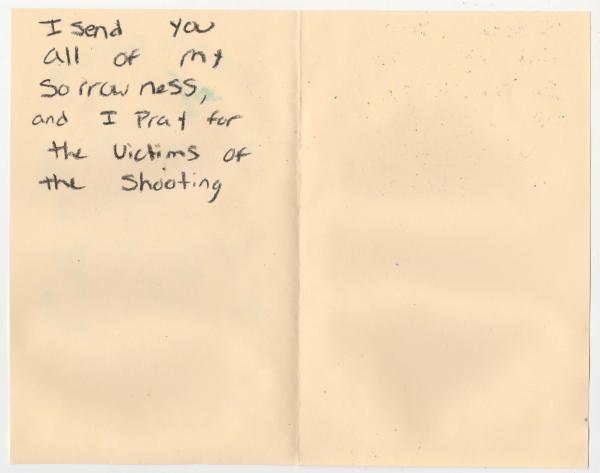 I send you
all of my
sorrowness,
and I Pray for
the Victims of
the Shooting